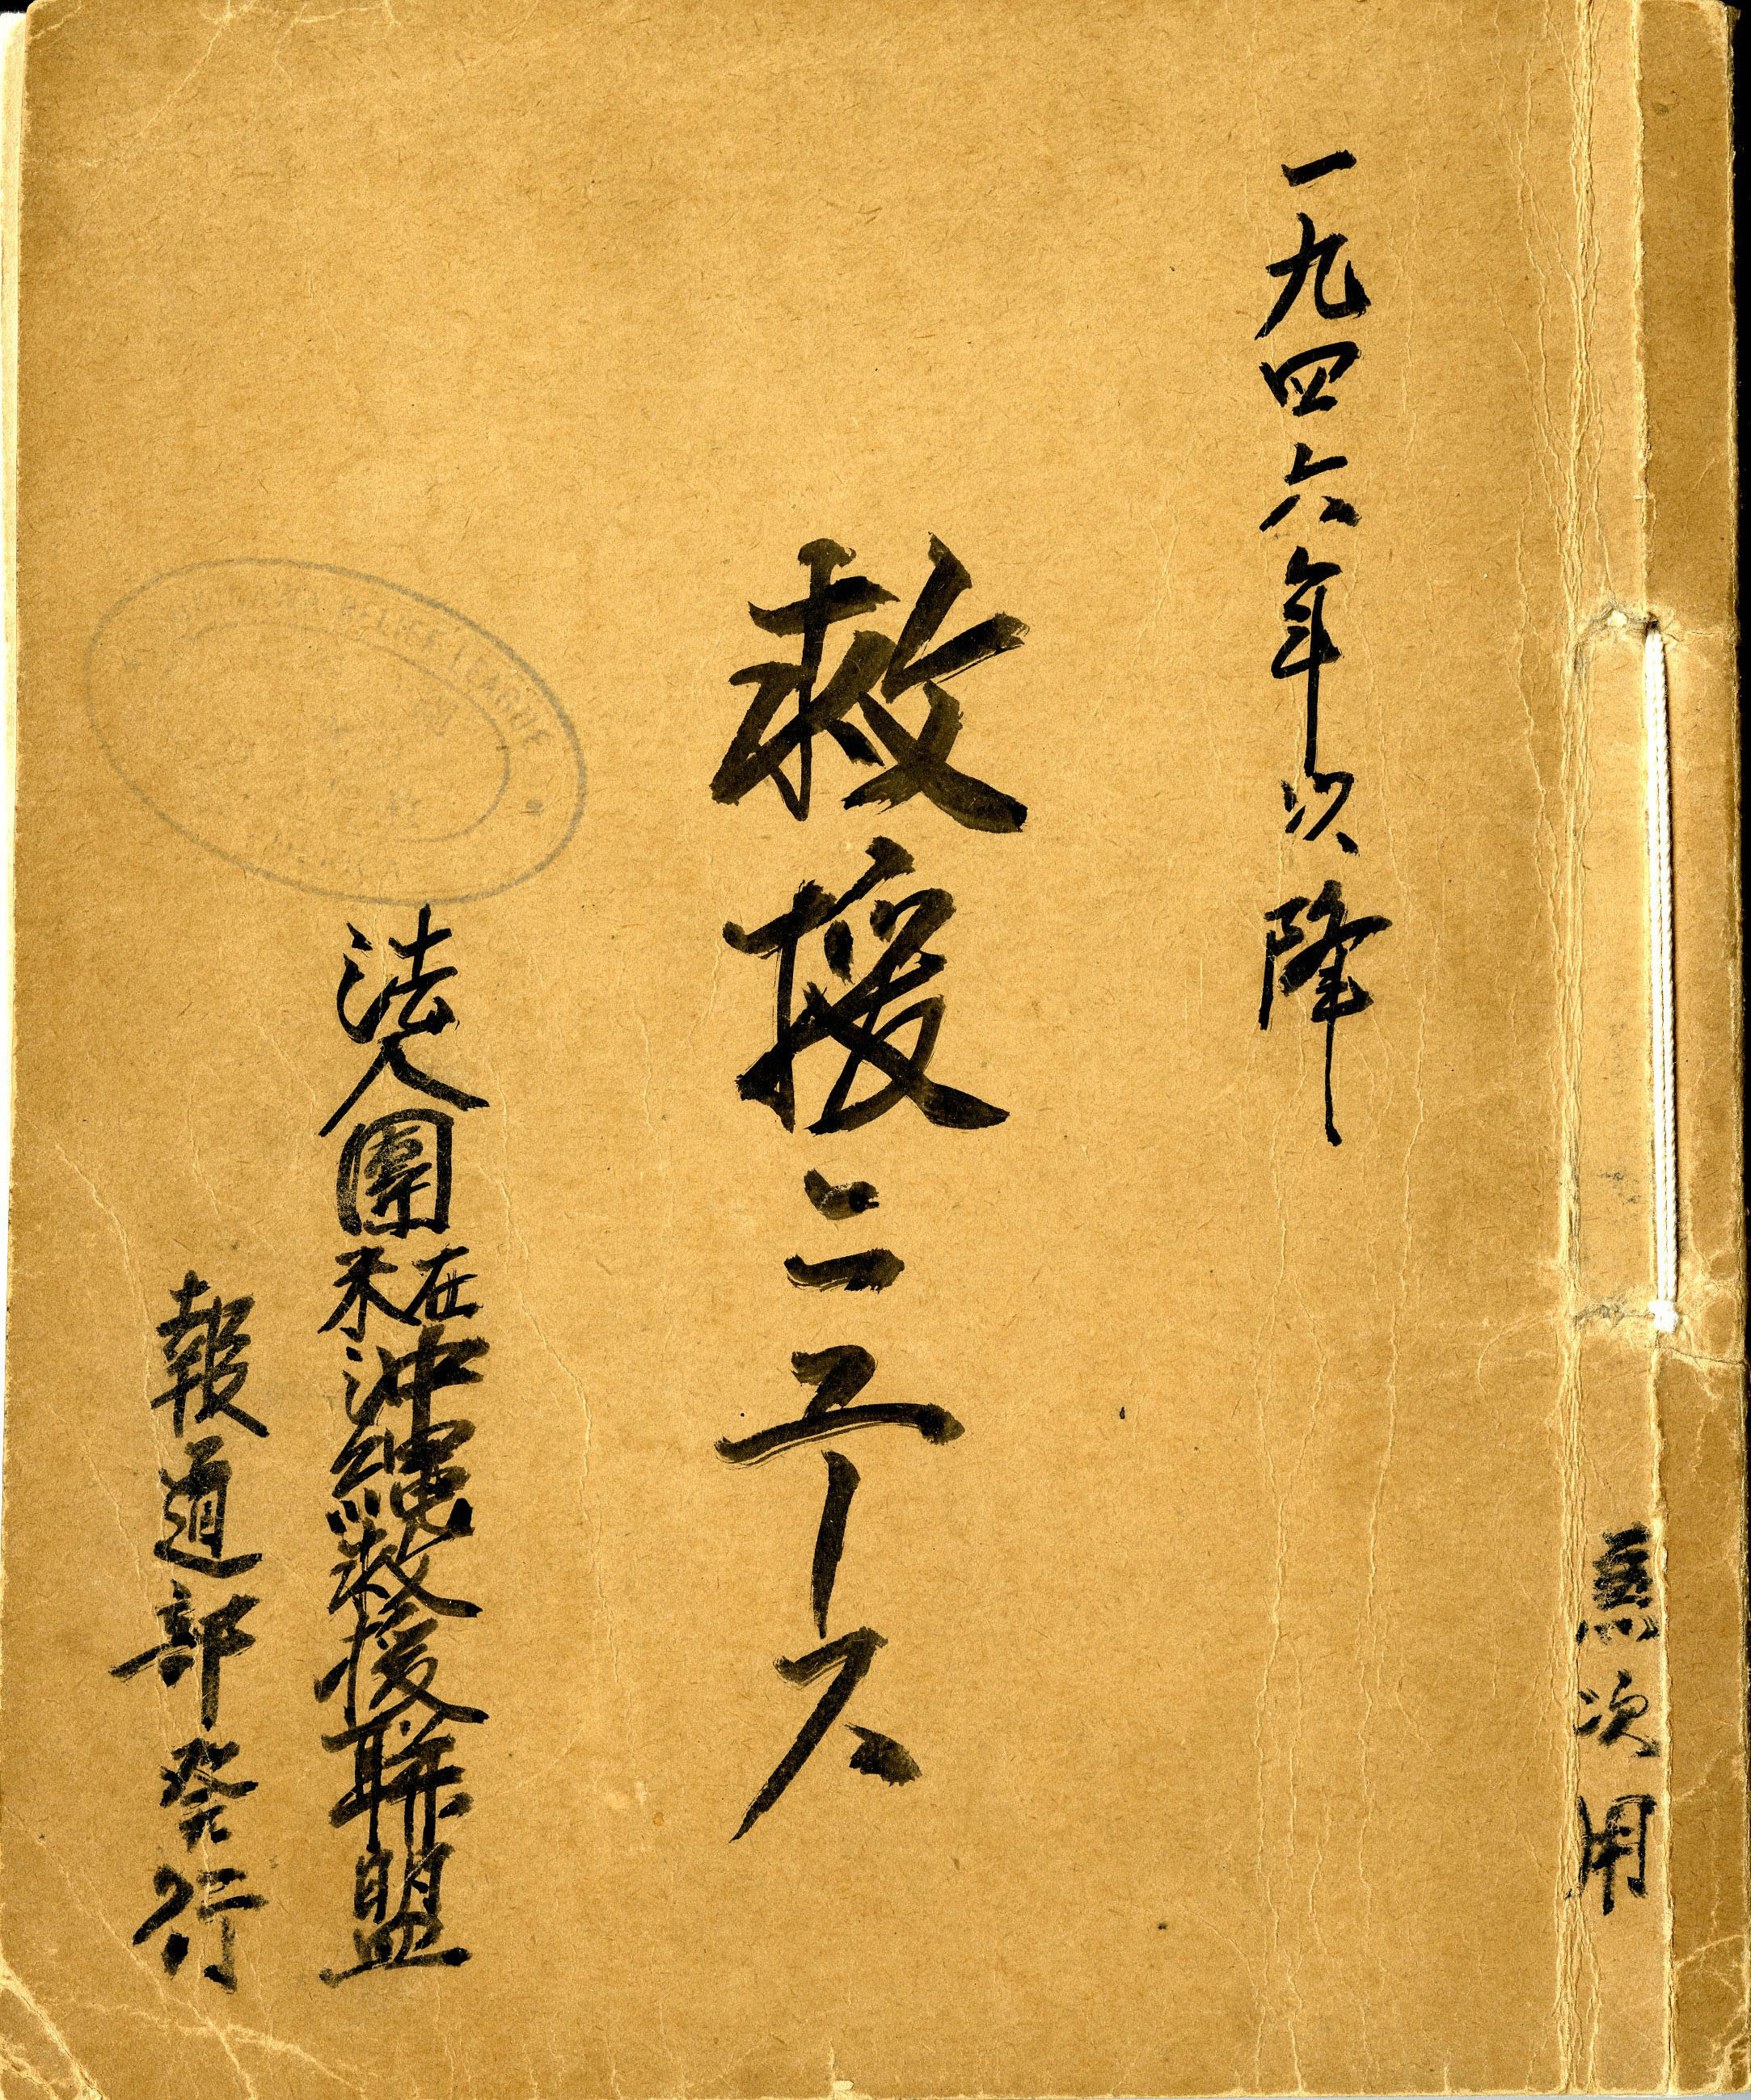 一九四六年以降
救援ニュース
法人團在米沖縄救援聯盟
報道部発行
次用
OKINAWA RELIEF LEAGUE